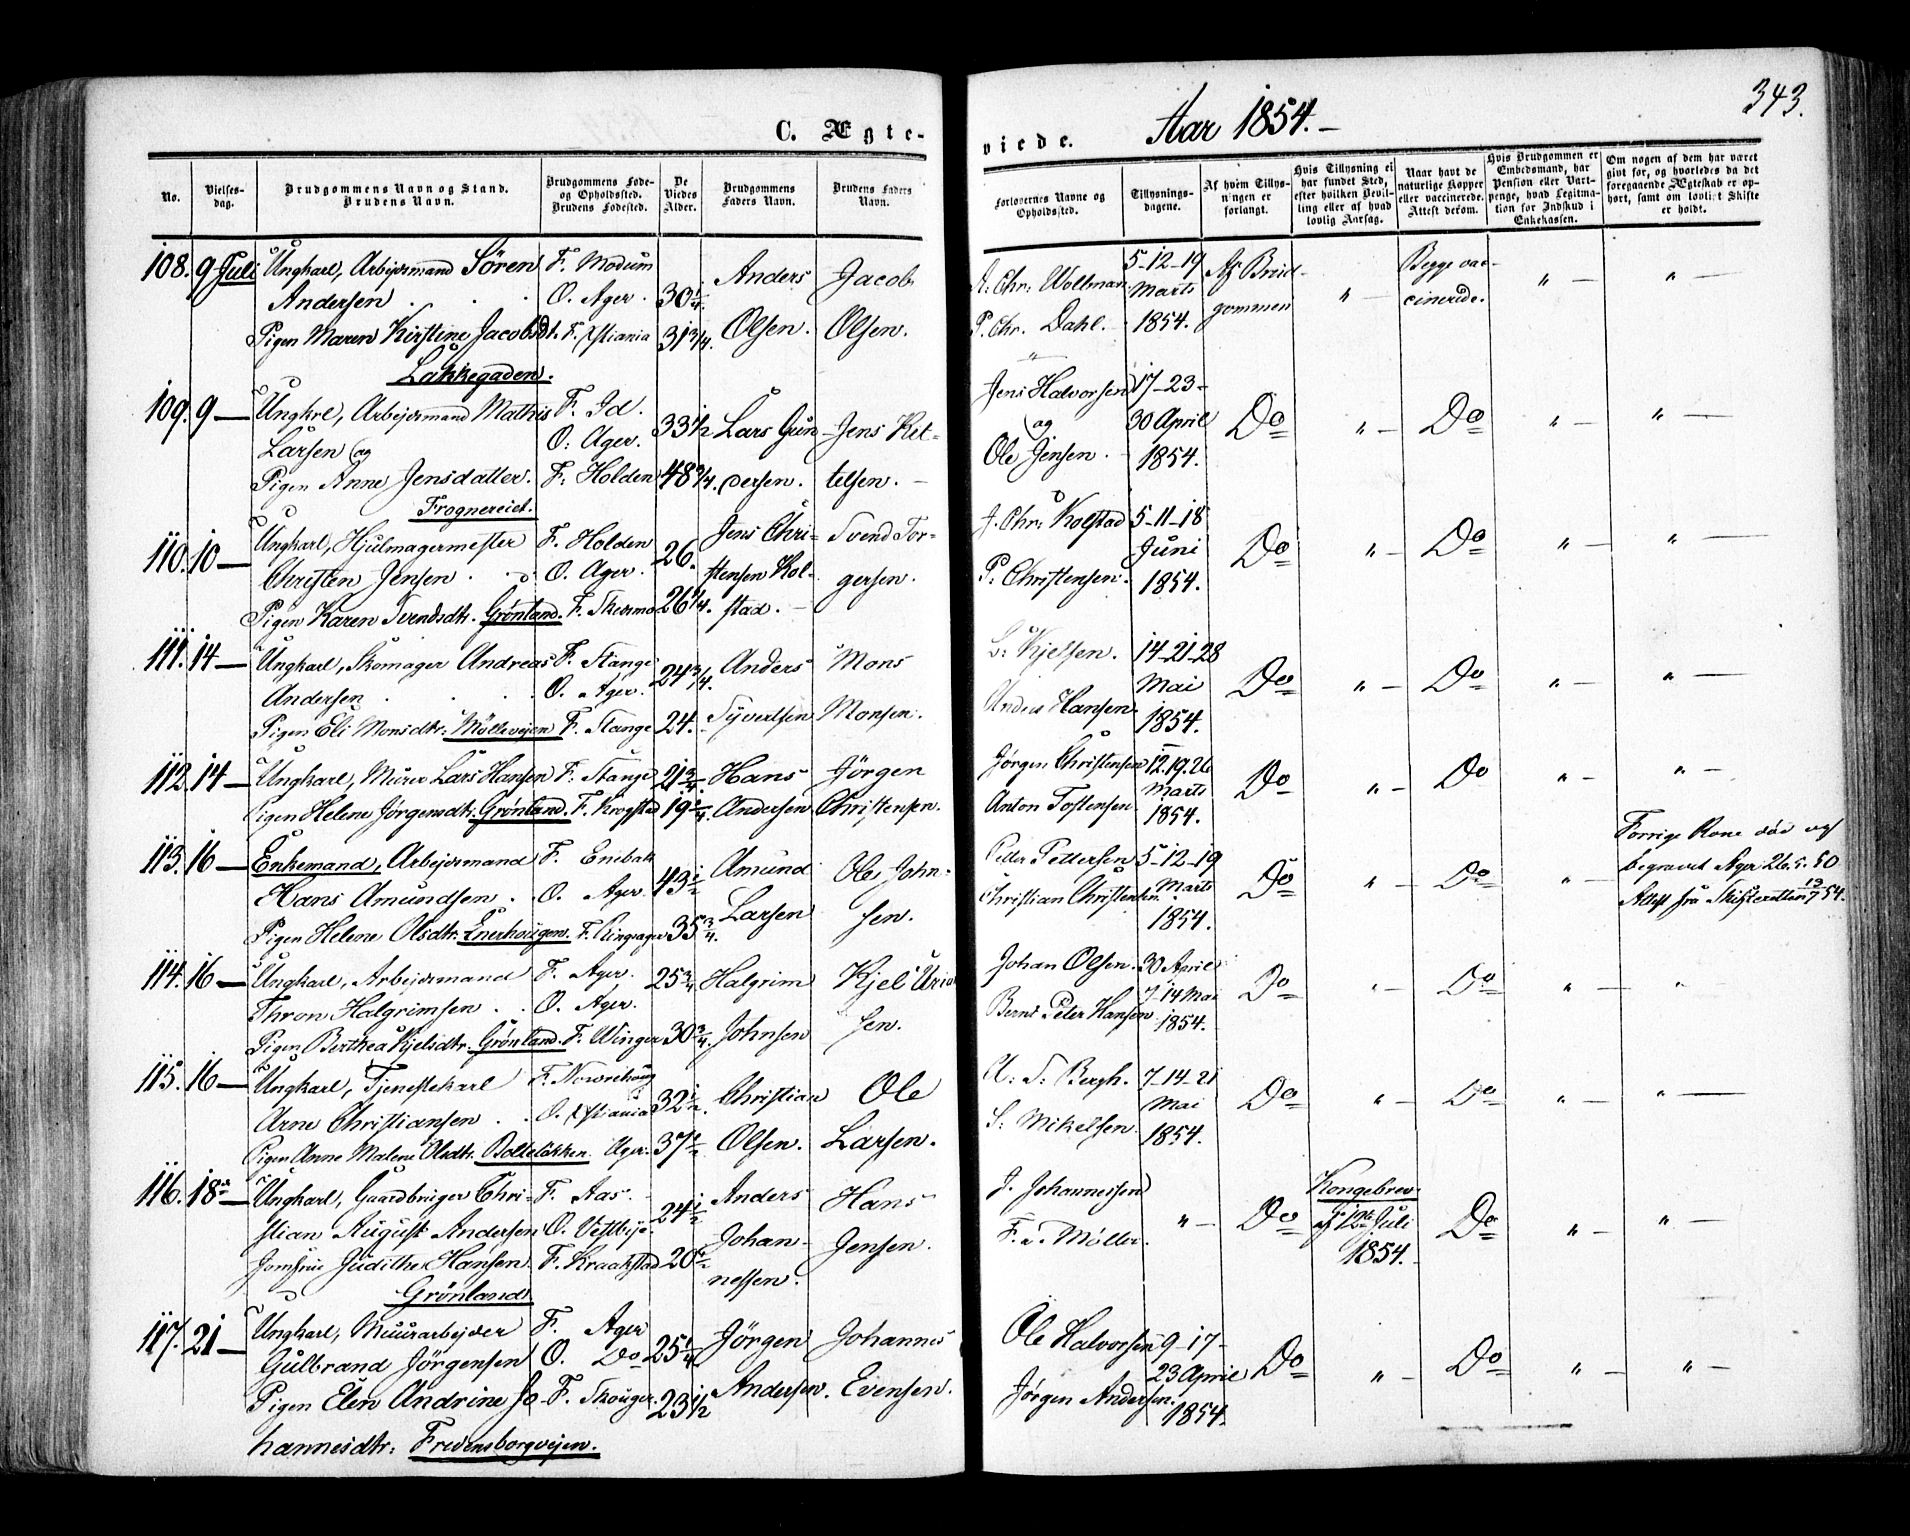 343.
C. Ægte-
viede. Aar 1854.
No.
Vielses-
dag.
Brudgommens Navn og Stand.
Brudens Navn.
Brudgommens Føde-
og Opholdssted.
Brudens Fødested.
De
Viedes
Alder.
Brudgommens
Faders Navn.
Brudens Faders
Navn.
Forlovernes Navne og
Opholdssted.
Tillysnings-
dagene.
Af hvem Tillys-
ningen er
forlangt.
Hvis Tillysning ei
har fundet Sted,
efter hvilken Bevil-
ling eller af hvad
lovlig Aarsag.
Naar havt de
naturlige Kopper
eller vaccinerede.
Attest derom.
Hvis Brudgommen er
Embedsmand, har
Pension eller Vart-
penge, hvad Legitima-
tion for Indskud i
Enkekassen.
Om nogen af dem har været
gift før, og hvorledes da det
foregaaende Ægteskab er op-
hørt, samt om lovligt Skifte
er holdt.
108. 9 Juli Ungkarl, Arbejdsmand Sören
Andersen
Pigen Maren Kirstine Jacobsdt.
Lakkegaden.
F. Modum
O. Ager.
F. Xstiania
30 1/4.
31 3/4.
Anders
Olsen.
Jacob
Olsen.
A. Chr. Wollman
P. Chr. Dahl.
5-12-19
Marts
1854.
Af Brud-
gommen
" -
Begge vac-
cinerede.
" -
" -
109. 9 - Ungkrl, Arbejdsmand Mathis
Larsen og
Pigen Anne Jensdatter.
Frognereiet.
F. Id.
O. Ager.
F. Holden
33 1/2
48 3/4.
Lars Gun-
dersen.
Jens Ket-
telsen.
Jens Halvorsen
og
Ole Jensen.
17-23-
30 April
1854.
Do
" -
Do
" -
" -
110. 10 - Ungkarl, Hjulmagermester
Christen Jensen.
Pigen Karen Svendsdtr. Grönland.
F. Holden
O. Ager.
F. Skedsmo
26.
26 1/4.
Jens Chri-
stensen Kol-
stad.
Svend Tor-
gersen.
J. Chr. Kolstad
P. Christensen.
5-11-18
Juni
1854.
Do
" -
Do
" -
" -
111. 14 - Ungkarl, Skomager Andreas
Andersen
Pigen Eli Monsdtr. Möllevejen
F. Stange
O. Ager.
F. Stange
24 3/4.
24.
Anders
Syvertsen
Mons
Monsen.
L. Kjelsen.
Anders Hansen.
14-21-28
Mai
1854.
Do
" -
Do
" -
" -
112. 14 - Ungkarl, Murer Lars Hansen
Pigen Helene Jörgensdtr. Grönland.
F. Stange
F. Krogstad
21 3/4.
19 3/4.
Hans
Andersen
Jörgen
Christensen.
Jörgen Christensen
Anton Tostensen
12.19.26
Marts
1854.
Do
" -
Do
" -
" -
113. 16 - Enkemand, Arbejdsmand
Hans Amundsen.
Pigen Helene Olsdtr. Enerhougen.
F. Enebak
O. Ager.
F. Ringsager
43 1/2
35 3/4.
Amund
Larsen
Ole John-
sen.
Peder Pettersen
Christian Christensen.
5-12-19
Marts
1854.
Do
" -
Do
" -
Forrige Kone död og
begravet Ager 26.5.50
Attest fra Skifteretten 12/7 54.
114. 16 - Ungkarl, Arbejdsmand
Thron Halgrimsen.
Pigen Berthea Kjelsdtr. Grönland.
F. Ager.
O. Ager.
F. Winger
25 3/4
30 3/4.
Halgrim
Johnsen
Kjel Uria
sen.
Johan Olsen.
Bernt Peter Hansen
30 April
7-14 Mai
1854.
Do
" -
Do
" -
"
115. 16 - Ungkarl, Tjenestekarl
Arne Christiansen.
Pigen Anne Malene Olsdtr. Bolteløkken.
O. Xstiania
Ager.
32 1/2.
37 1/2
Christian
Olsen.
Ole
Larsen.
A. S. Bergh.
S. Mikelsen.
7-14-21
Mai
1854.
Do
" -
Do
" -
" -
116. 18de Ungkarl, Gaardbruger Chri-
stian August Andersen
Jomfrue Judithe Hansen
Grönland
F. Aas.
O. Vestbye.
F. Kraakstad
24 1/2
20 1/2
Anders
Johan-
nessen.
Hans
Jensen.
J. Johannessen
F. Møller.
" -
Do
Kongebrev
af 12te Juli
1854.
Do
" -
" -
117. 21 - Ungkarl, Muurarbejder
Gulbrand Jörgensen
Pigen Elen Andrine Jo-
hannesdtr. Fredensborgvejen.
F. Ager
O. Do
F. Skouger.
25 1/4
23 1/2
Jörgen
Andersen.
Johannes
Evensen.
Ole Halvorsen
Jörgen Andersen.
9-17-
23 April
1854.
Do
" -
Do
" -
" -